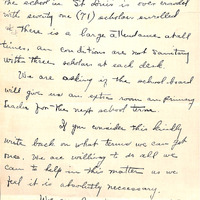 the school in St Louis is over crowded
with seventy one (71) scholars enrolled
& there is a large attendance at all
times, our conditions are not sanitary
with three scholars at each desk.
We are asking if the school board
will give us an extra room for primary
grades for the next school term.
If you consider this kindly
write back on what terms we can get
one. We are willing to do all we
can to help in this matter as we
feel it is absolutely necessary.